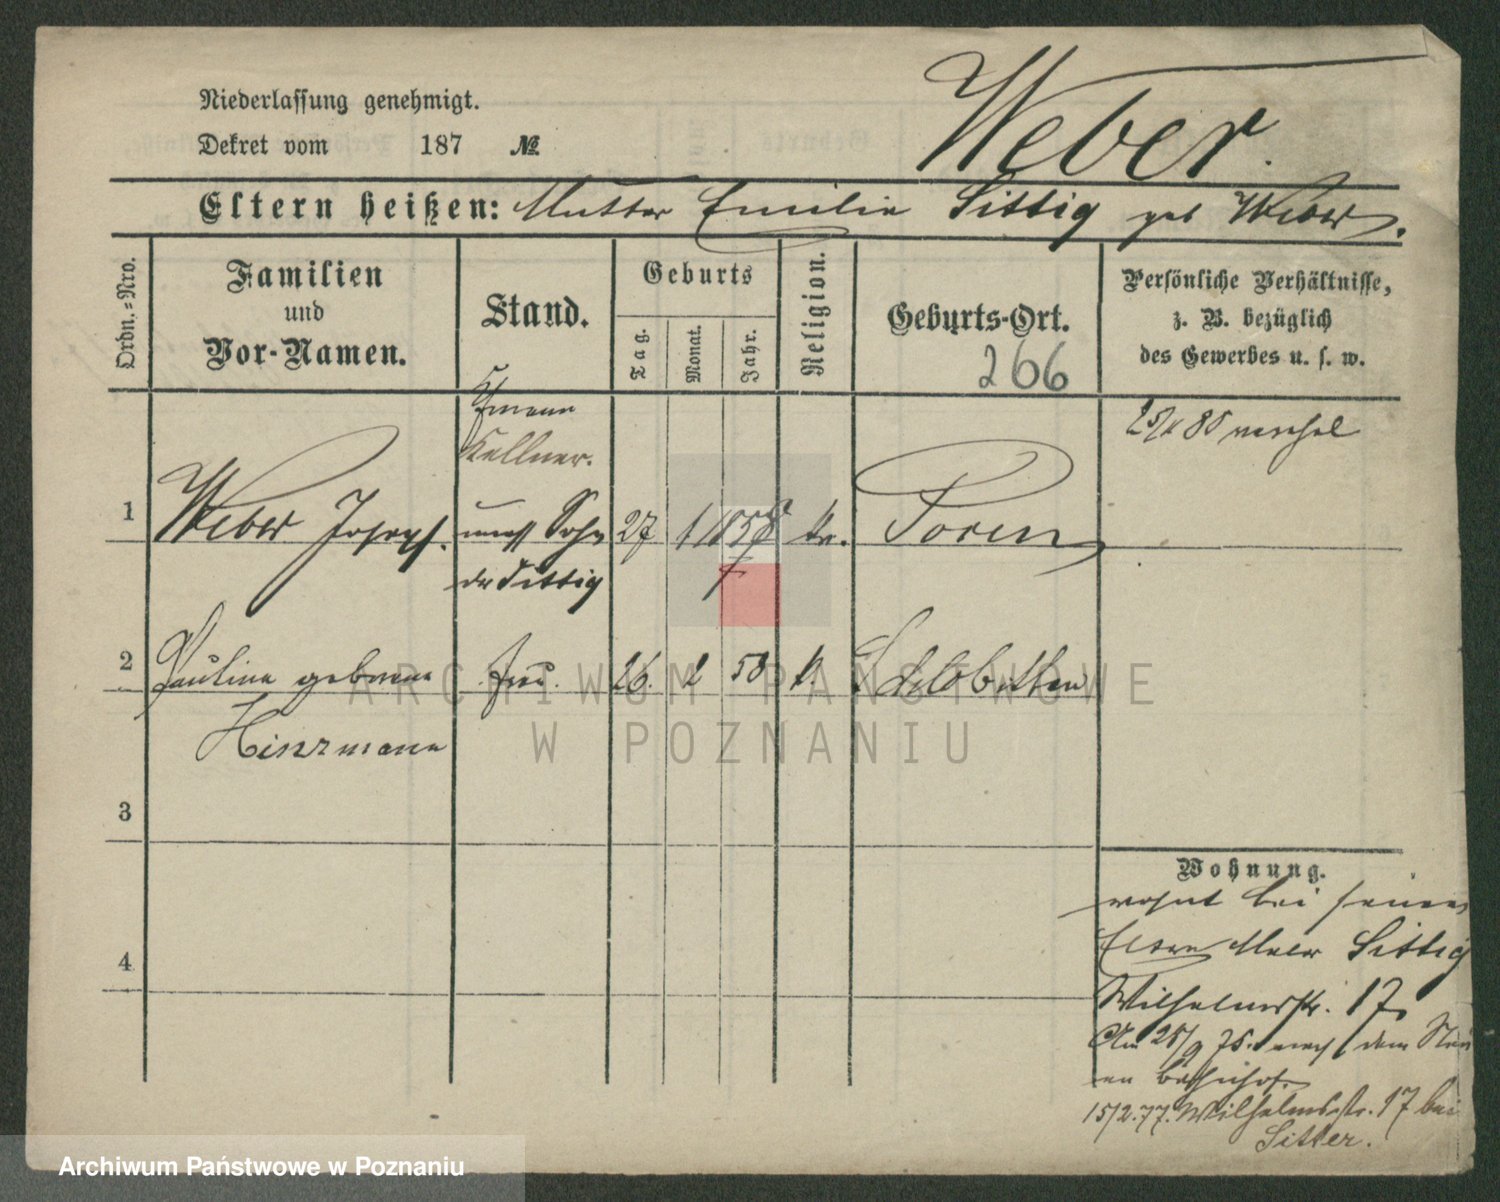 Weber.
Niederlassung genehmigt.
Dekret vom 187 №
Eltern heißen: Mutter Emilie Sittig geb Weber.
Ordn.=Nro.
Familien
und
Vor-Namen.
Stand.
Geburts
Tag.
Monat.
Jahr.
Religion.
Geburts-Ort.
266
Persönliche Verhältnisse,
z. B. bezüglich
des Gewerbes u. s. w.
Kellner.
1
Weber Joseph.
Sohn
der Sittig
27 1 1858
7
k.
Posen
2
Pauline geborene
Hinzmann
frau.
26. 2 58 k.
3
4
Wohnung.
wohnt bei seinen
Eltern Sittig
Wilhelmstr. 17.
Am 25/9 75. nach dem
Bahnhof.
15/2.77. Wilhelmsstr. 17 bei
ARCHIWUM PAŃSTWOWE
W POZNANIU
Archiwum Państwowe w Poznaniu